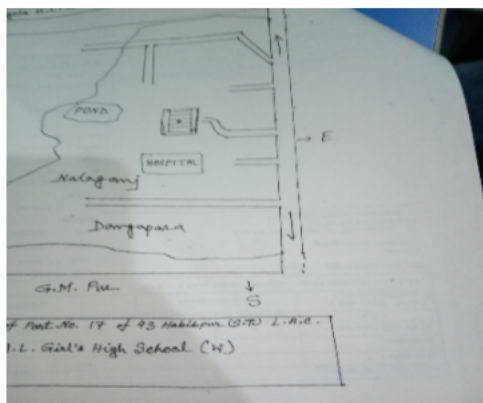 POND
E
HOSPITAL
Nalagonj
Dangapara
G.M. Pur
S
of Part. No. 17 of 43 Habibpur (S.T.) L.A.C.
.L. Girl's High School (W)